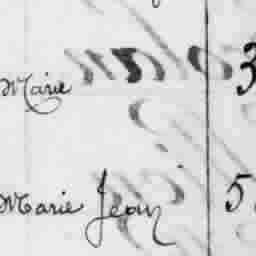 Marie 3
Marie Jean 5